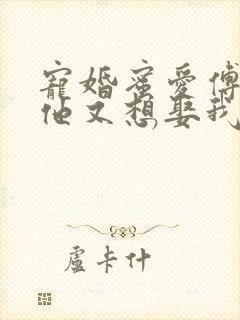 寵婚蜜愛傅
他又想娶我
盧卡什